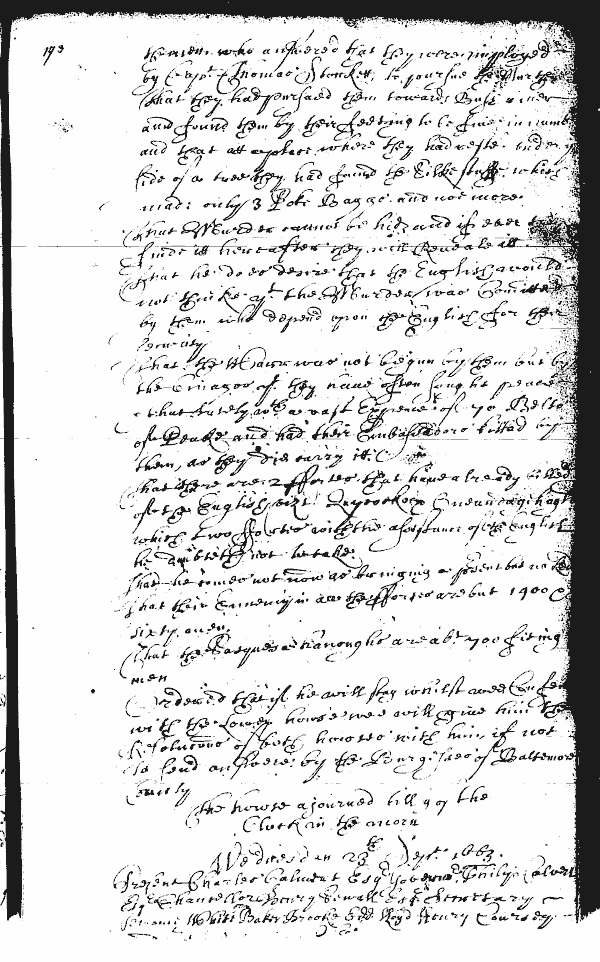 193
them who answered that they were imployed
by Capt Thomas Stockett to pursue the Murther
that they had pursued them towards Bush river
and found them by their feeting to be five in numb
and that att a place where they had reste under y
side of a tree they had found the silke stuffe which
made only 3 Poke Baggs and not more
That Murder cannot be hid and if ever
finde itt hereafter they will Reveale itt
That he does desire that the English would
not thinke yt the Murder was Comitted
by them who depend upon the English for their
security
That the Warr was not begun by them but by
the they have often sought peace
that lately wth a vast Expence of 70 Belts
of Peake and had their Embassadors killed by
them, as they did carry itt
That there are 2 ffortes that have already killed
of the English vizt
which two ffortes with the assistance of the English
he doubteth not to take
That he comes not now as bringing a present but naked
That their Ennemy in all the ffortes are but 1400 &
sixty men
That the Sasquesahanoughs are abt 700 fiting
men
Ordered that if he will stay whilst wee Confer
with the Lower howse wee will give him the
Resolucons of both howses with him if not
to send answere by the Burgesses of Baltemore
County
the howse ajourned till 9 of the
Clock in the morn
Wednesday 23th Sept. 1663.
Present Charles Calvert Esqr Governr, Philip Calvert
Esqr Chancellor Henry Sewall Esqr Secretary
Jerome White Baker Brooke Edd Lloyd Henry Coursey